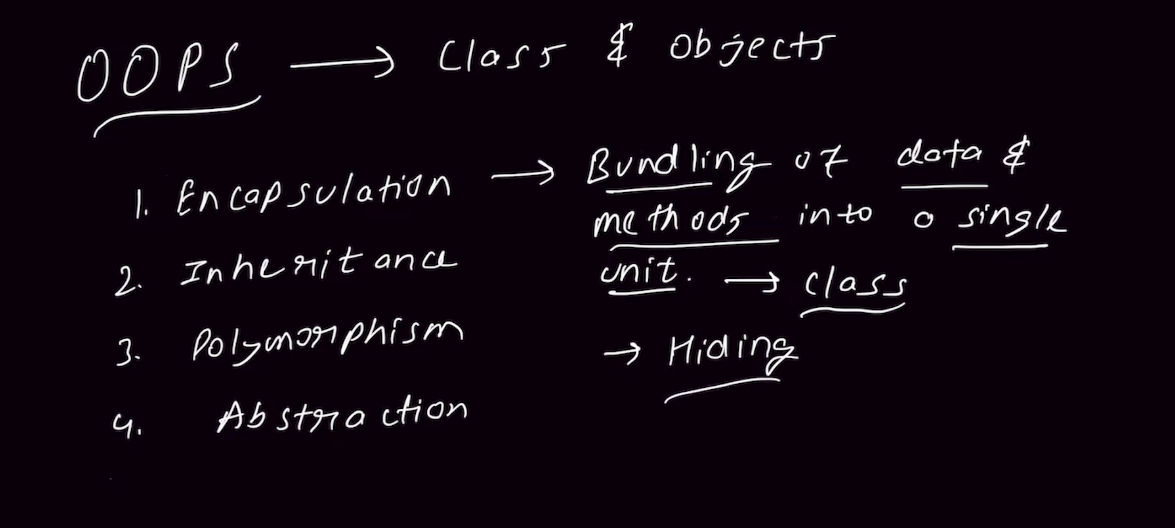 OOPS → Class & Objects
1. Encapsulation → Bundling of data &
methods into a single
unit. → class
→ Hiding
2. Inheritance
3. Polymorphism
4. Abstraction